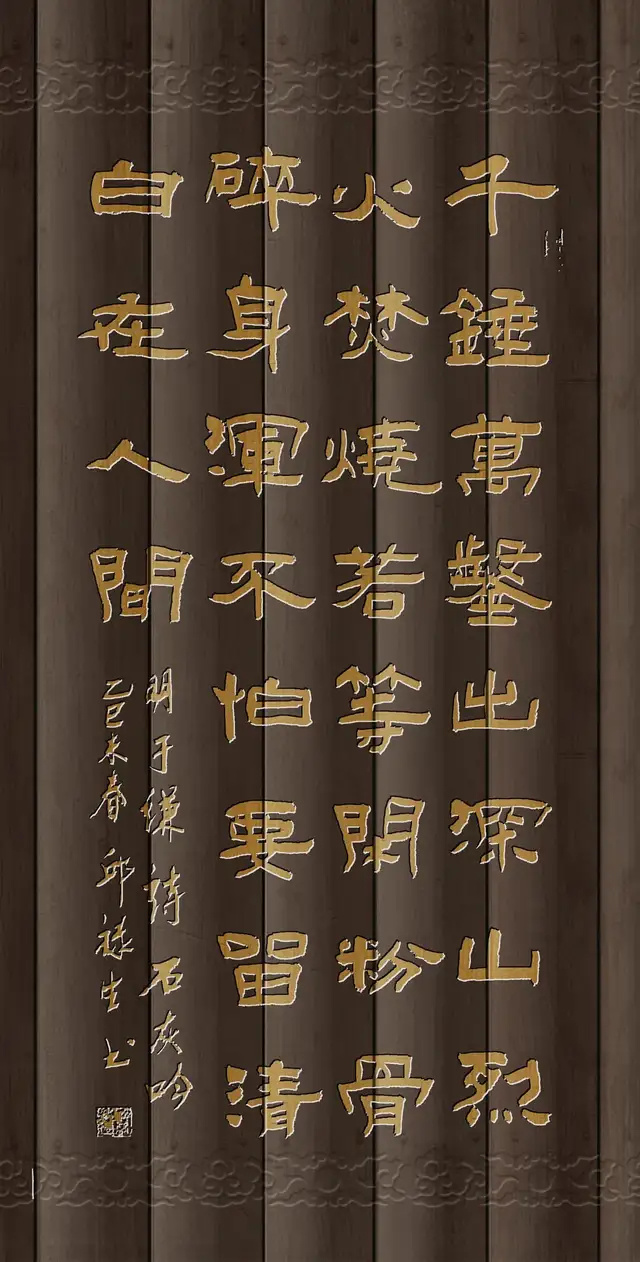 千錘萬鑿出深山烈
火焚燒若等閑粉骨
碎身渾不怕要留清
白在人間
明于謙詩石灰吟
乙巳末春 邱祿生书